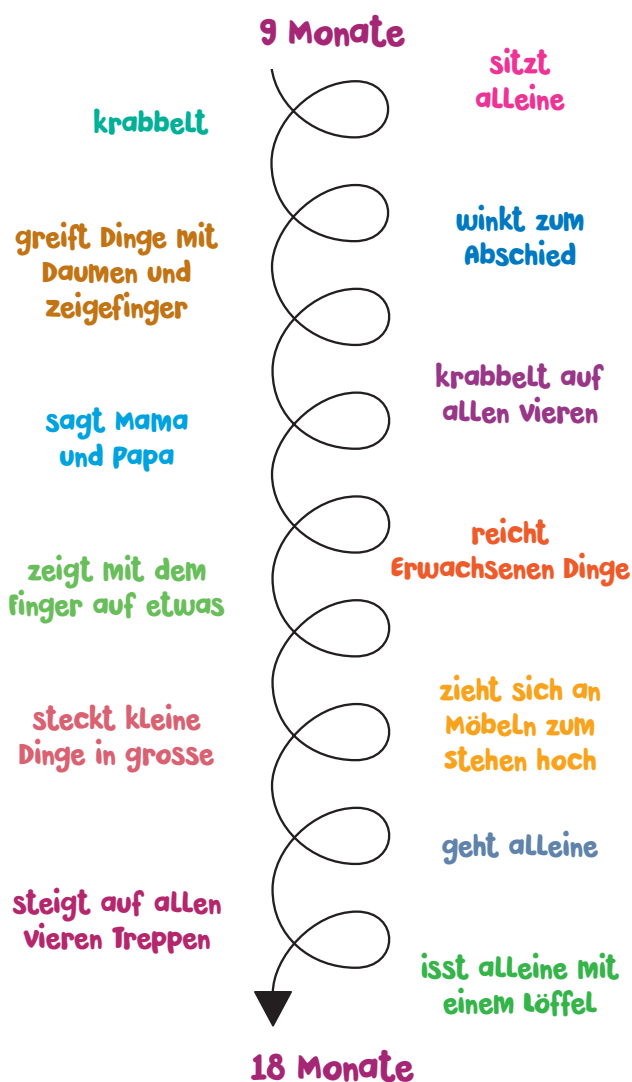 9 Monate
sitzt
alleine
krabbelt
winkt zum
Abschied
greift Dinge mit
Daumen und
Zeigefinger
krabbelt auf
allen Vieren
sagt Mama
und Papa
reicht
Erwachsenen Dinge
zeigt mit dem
Finger auf etwas
zieht sich an
Möbeln zum
Stehen hoch
steckt kleine
Dinge in grosse
geht alleine
steigt auf allen
Vieren Treppen
isst alleine mit
einem Löffel
18 Monate